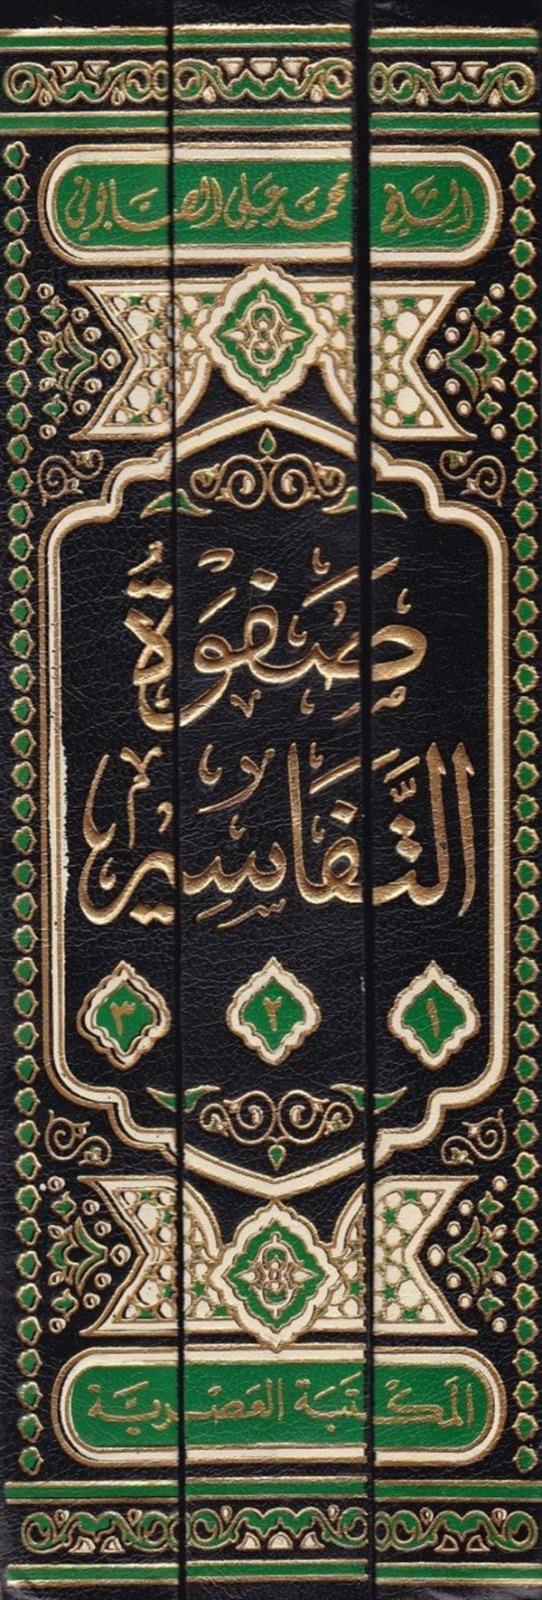 الشيخ محمد علي الصابوني
صَفْوَةُ
التَّفَاسِيرِ
١ ٢ ٣
المكتبة العصرية